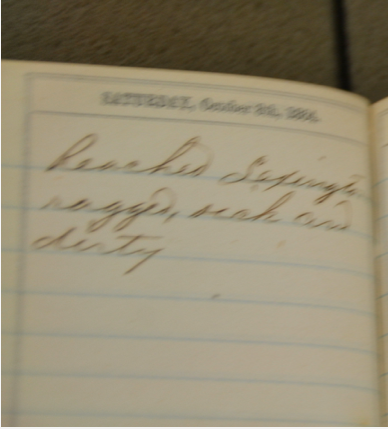 SATURDAY, October 1864.
Reached Lexington
ragged, weak and
dirty